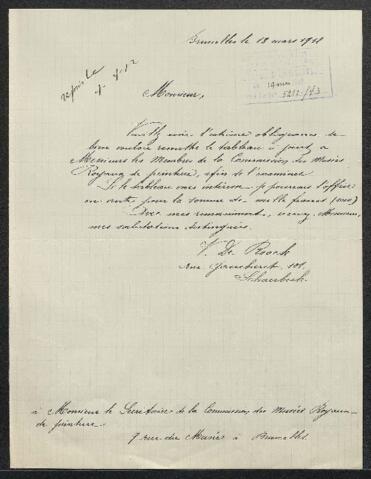 Bruxelles le 18 mars 1912
19 mars
5212/173
Monsieur,
Veuillez avoir l'extrême obligeance de
bien vouloir remettre le tableau ci joint, à
Messieurs les Membres de la Commission des Musées
Royaux de peinture, afin de l'examiner.
Si le tableau vous intéresse, je pourrais l'offrir
en vente, pour la somme de mille francs (1000)
Avec mes remerciements, Monsieur,
mes salutations distinguées.
V. De Roock
rue 101.
Schaerbeek.
à Monsieur le Secrétaire de la Commission des Musées Royaux
de peinture.
9 rue du Musée à Bruxelles.